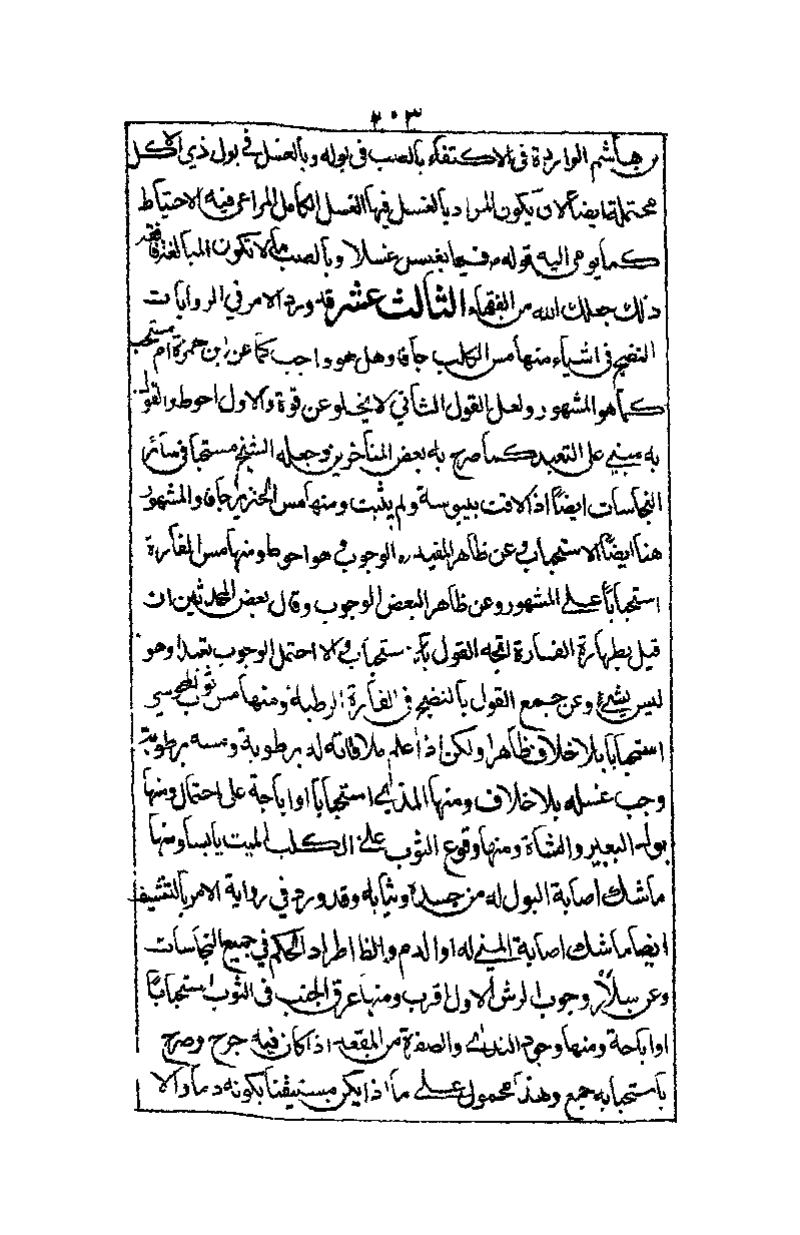 ٢٠٣
بن هاشم الواردة في الاكتفاء بالصب في بوله وبالغسل في بول ذي الاكل
محتملة ايضا لان يكون المراد بالغسل فيها الغسل الكامل المراعى فيه الاحتياط
كما يومى اليه قوله فيها يغسل غسلا وبالصب ما لا تكون المبالغة فافقه
ذلك جعلك الله من الفقهاء الثالث عشر قد ورد الامر في الروايات
النضح في اشياء منها مس الكلب جافا وهل هو واجب كما عن ابن حمزة ام مستحب
كما هو المشهور ولعل القول الثاني لا يخلو عن قوة والاول احوط والقول
به مبني على التعبد كما صرح به بعض المتأخرين وجعله الشيخ مستحبا في سائر
النجاسات ايضاً اذا لاقت بيبوسة ولم يثبت ومنها مس الخنزير جافا والمشهور
هنا ايضاً الاستحباب وعن ظاهر المفيد ره الوجوب وهو احوط ومنها مس الفأرة
استحباباً على المشهور وعن ظاهر البعض الوجوب وقال بعض المحدثين ان
قيل بطهارة الفارة اتجه القول بالاستحباب والا احتمل الوجوب تعبدا وهو
ليس بشيء وعن جمع القول بالنضح في الفأرة الرطبة ومنها مس ثوب المجوسي
استحبابا بلا خلاف ظاهرا ولكن اذا علم ملاقاته له برطوبة ومسه برطوبة
وجب غسله بلا خلاف ومنها المذي استحباباً او اباحة على احتمال ومنها
بول البعير والشاة ومنها وقوع الثوب على الكلب الميت يابسا ومنها
ما شك اصابة البول له من جسده وثيابه وقد ورد في رواية الامر بالتنشيف
ايضا ما شك اصابة المني له او الدم والظ اطراد الحكم في جميع النجاسات
وعن سلار وجوب الرش الاول اقرب ومنها عرق الجنب في الثوب استحباباً
او اباحة ومنها وجود الندى والصفرة من المقعد اذا كان فيه جرح وصرح
باستحبابه جمع وهذا محمول على ما اذا يكن مستيقنا بكونه دما والا